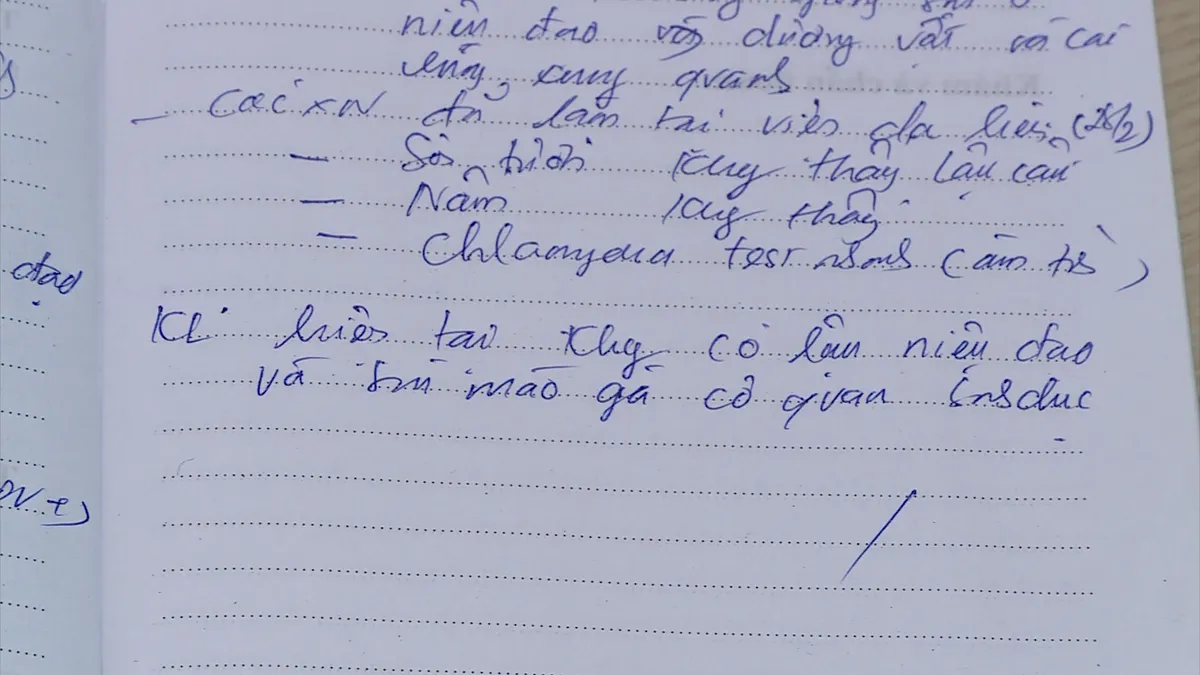 niệu đạo vùng dương vật và các
vùng xung quanh
- Các XN đã làm tại viện da liễu (28/2)
- Soi tươi Khg thấy lậu cầu
- Nấm Khg thấy
- Chlamydia test nhanh (âm tính)
KL: hiện tại Khg có lậu niệu đạo
và sùi mào gà cơ quan sinh dục
đạo
+)